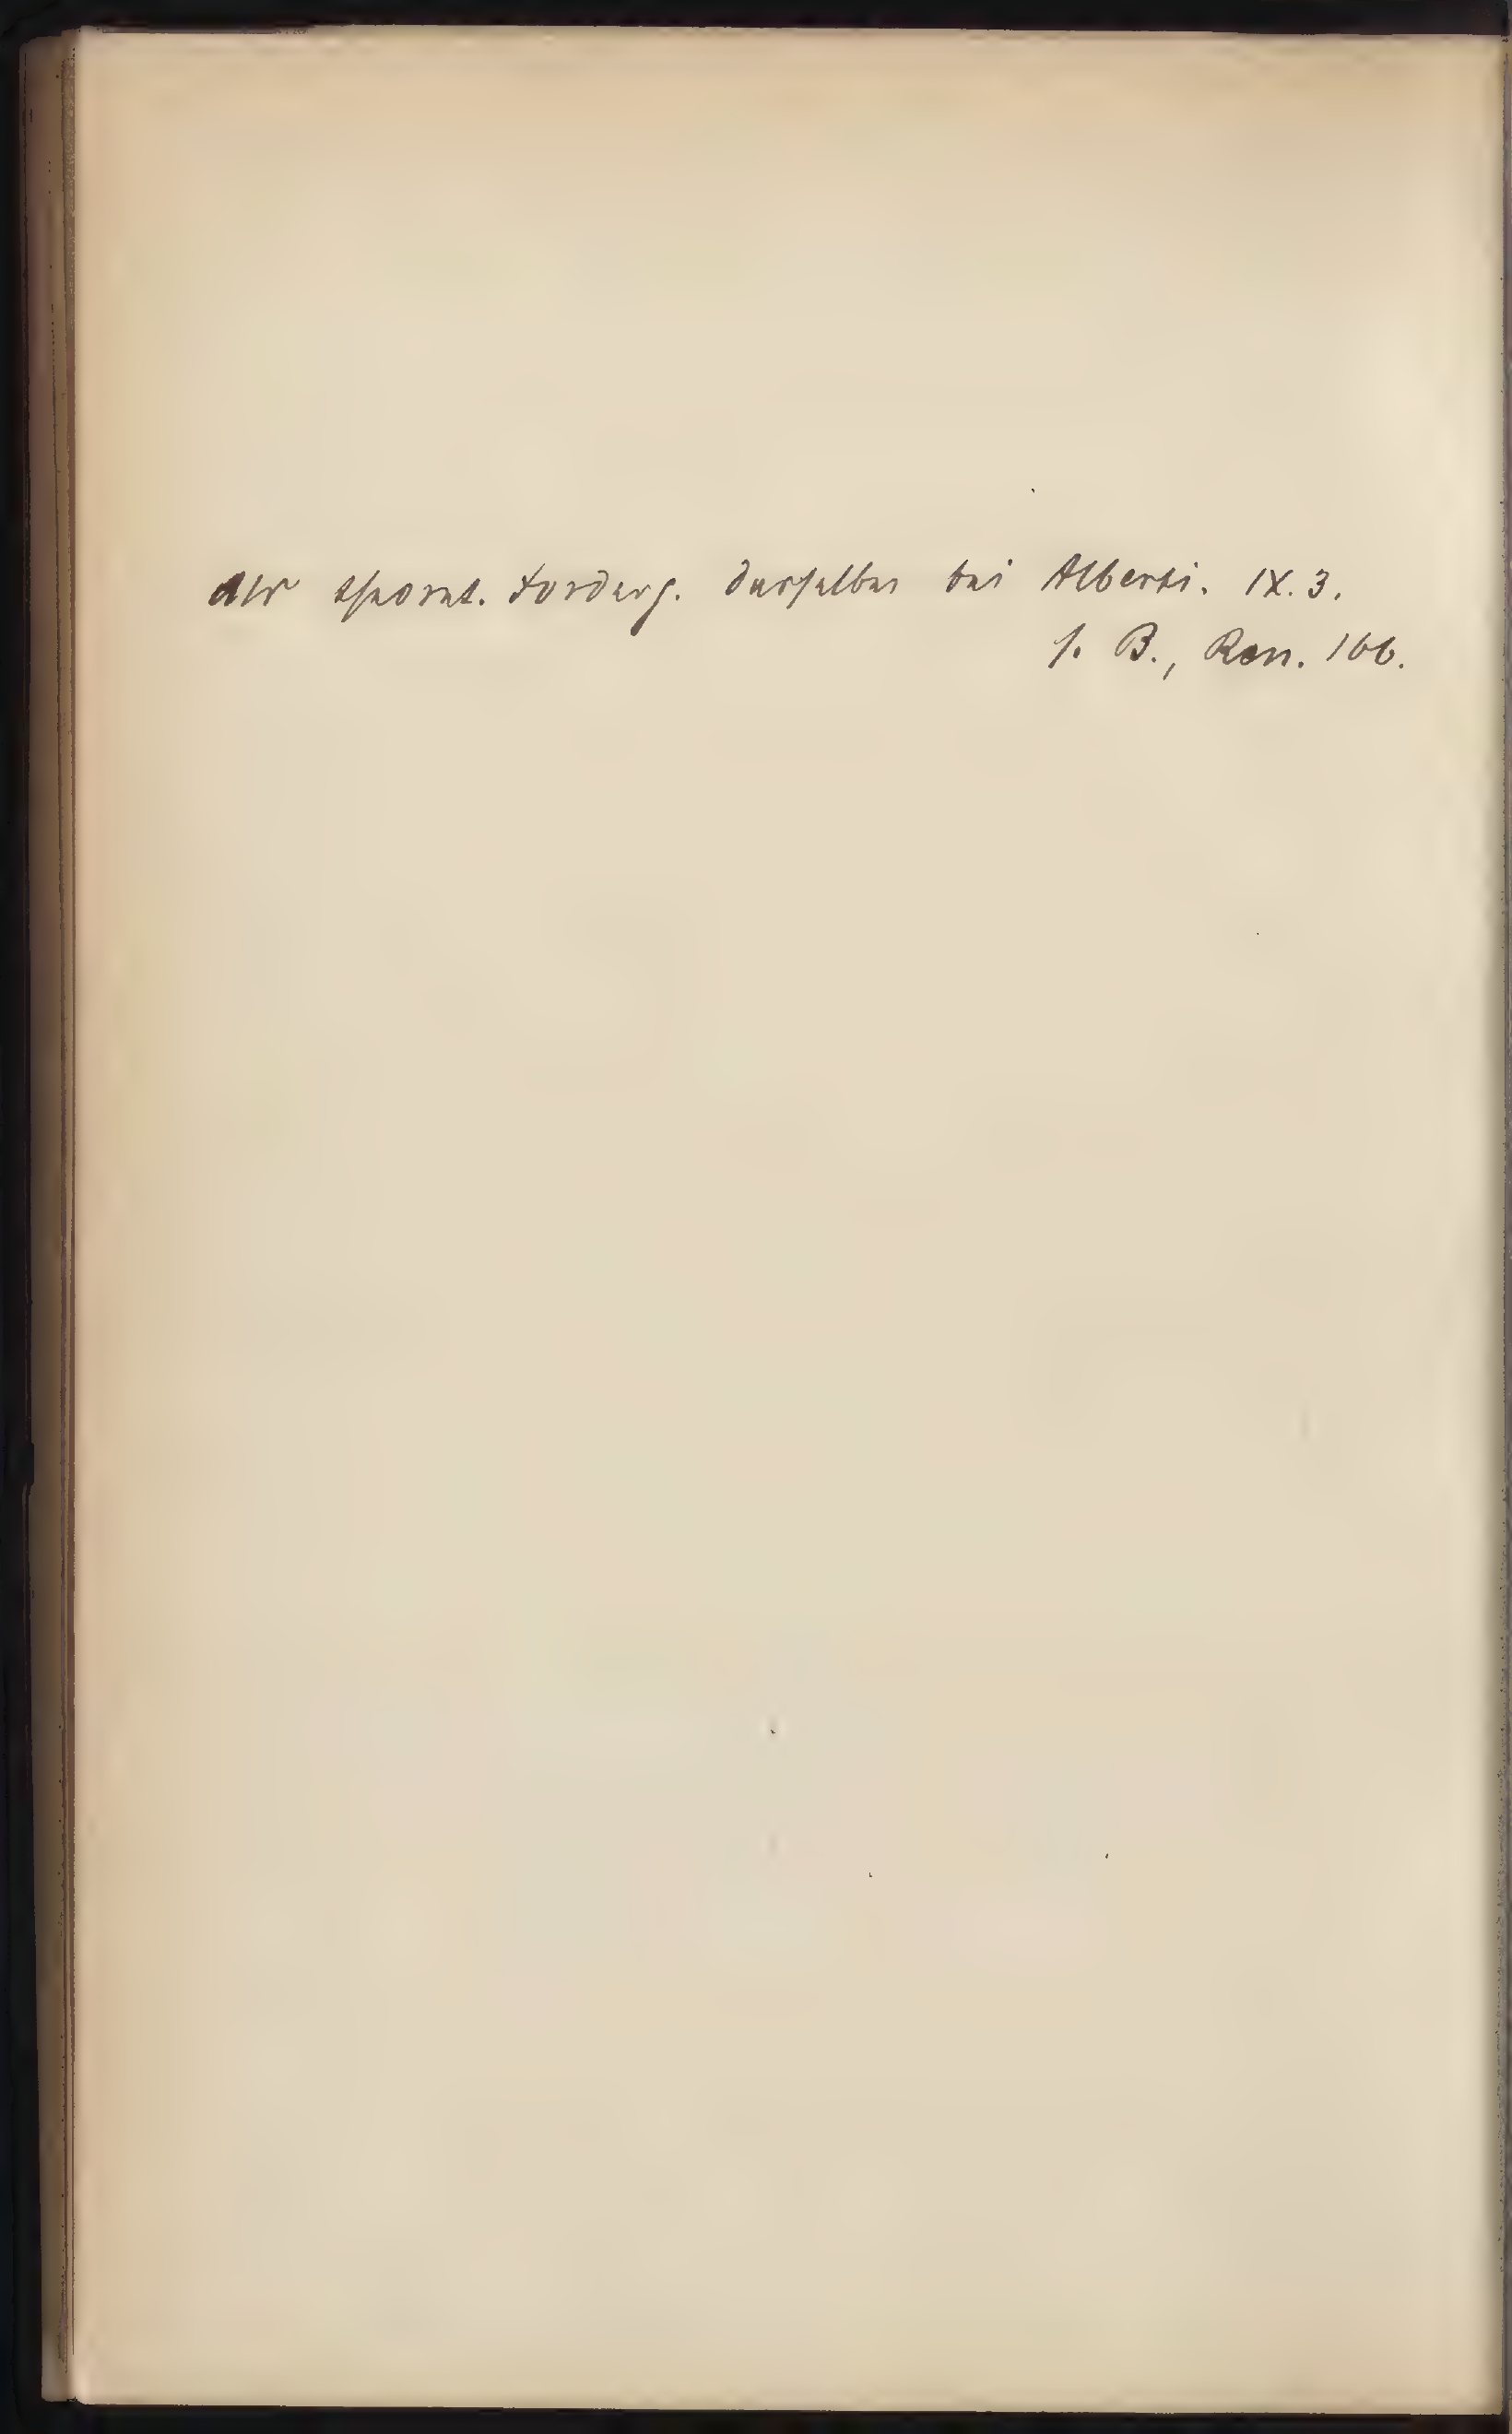 die theoret. Forderg. derselben bei Alberti. IX. 3.
s. B., Ren. 166.